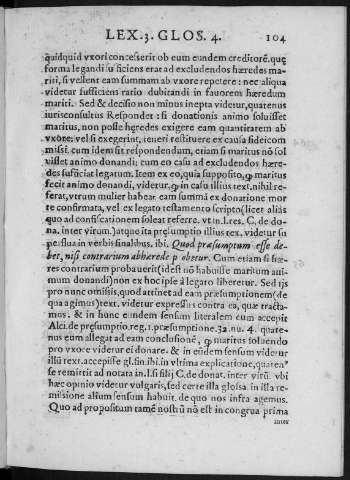 LEX.3. GLOS. 4. 104
quidquid vxori concesserit ob eum eundem creditorē. quę
forma legandi sufficiens erat ad excludendos hæredes ma-
riti, si vellent eam summam ab vxore repetere: nec aliqua
videtur sufficiens ratio dubitandi in fauorem hæredum
mariti. Sed & decisio non minus inepta videtur, quatenus
iurisconsultus Respondet: si donationis animo soluisset
maritus, non posse heredes exigere eam quantitatem ab
vxore: vel si exegerint, teneri restituere ex causa fideicom
missi. cum idem sit respondendum, etiam si maritus nō sol
uisset animo donandi: cum eo casu ad excludendos hære-
des sufficiat legatum. Item ex eo, quia supposito, ꝙ maritus
fecit animo donandi, videtur, ꝙ in casu illius text. nihil re-
ferat, vtrum mulier habeat eam summā ex donatione mor
te confirmata, vel ex legato testamento scripto (licet aliàs
quo ad confiscationem soleat referre. vt in l. res. C. de do-
na. inter virum.) atque ita præsumptio illius tex. videtur su
perflua in verbis finalibus. ibi. Quod præsumptum esse de-
bet, nisi contrarium abhærede probetur. Cum etiam si hæ-
res contrarium probauerit (idest nō habuisse maritum ani-
mum donandi) non ex hoc ipse à legato liberetur. Sed ijs
pro nunc omissis, quod attinet ad eam præsumptionem (de
qua agimus) text. videtur expressus contra ea, quæ tracta-
mus. & in hunc eundem sensum literalem eum accepit
Alci. de pręsumptio. reg. 1. præsumptione. 32. nu. 4. quate-
nus eum allegat ad eam conclusionē, ꝙ maritus soluendo
pro vxore videtur ei donare. & in eūdem sensum videtur
illū text. accepisse gl. fin. ibi. in vltima explicatione, quaten9
se remittit ad notata in. l. si filij C. de donat. inter virū. vbi
hæc opinio videtur vulgaris, sed certe illa glossa. in illa re-
missione alium sensum habuit. de quo nos infra agemus.
Quo ad propositum tamē nostrū nō est in congrua prima